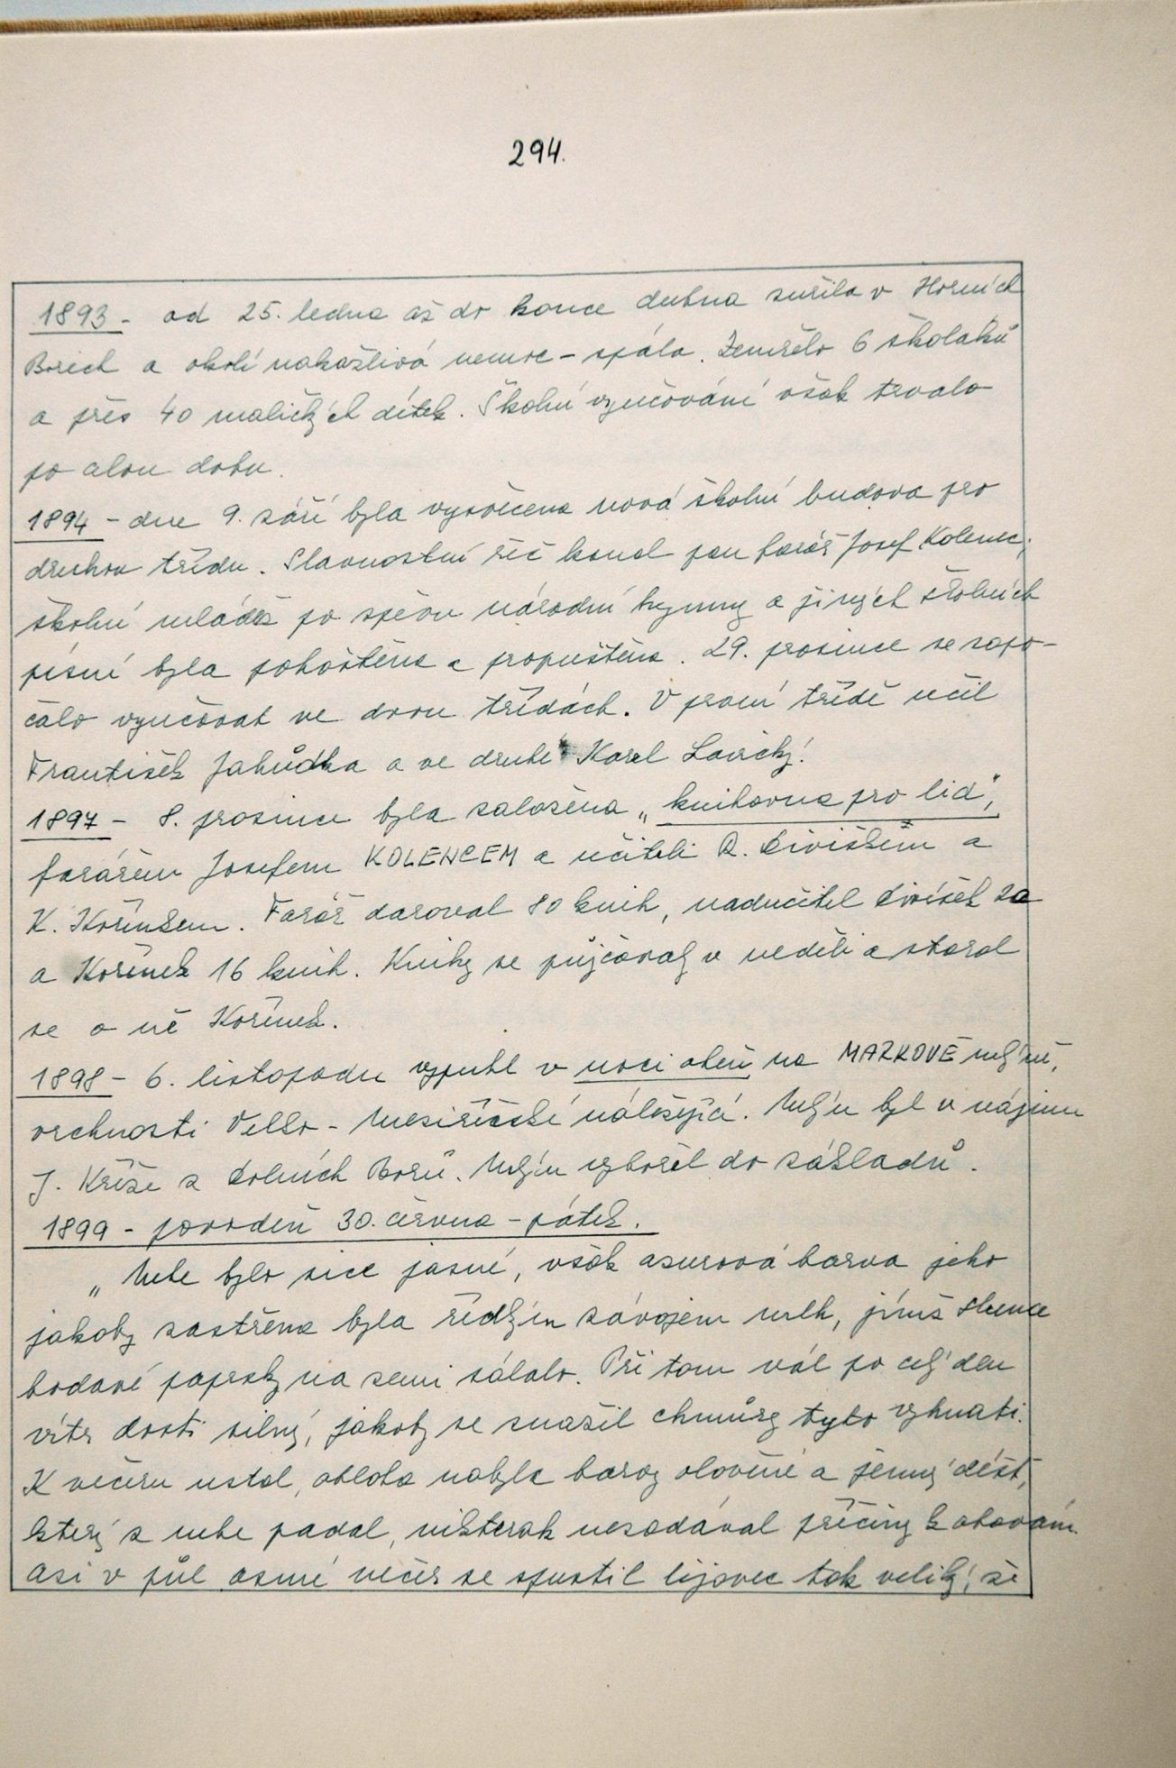 294.
1893 - od 25. ledna až do konce dubna zuřila v Horních
Borích a okolí nakažlivá nemoc - spála. Zemřelo 6 školáků
a přes 40 maličkých dítek. Školní vyučování však trvalo
po celou dobu.
1894 - dne 9. září byla vysvěcena nová školní budova pro
druhou třídu. Slavnostní řeč konal pan farář Josef Kolenec,
školní mládež po zpěvu národní hymny a jiných školních
písní byla pohoštěna a propuštěna. 29. prosince se zapo-
čalo vyučovat ve dvou třídách. V první třídě učil
František Jahůdka a ve druhé Karel Lavický.
1897 - 8. prosince byla založena „knihovna pro lid",
farářem Josefem KOLENCEM a učiteli R. Divíškem a
K. Kořínkem. Farář daroval 80 knih, nadučitel Divíšek 20
a Kořínek 16 knih. Knihy se půjčovaly v neděli a staral
se o ně Kořínek.
1898 - 6. listopadu vypukl v noci oheň na MARKOVĚ mlýně,
vrchnosti Velko - Meziříčské náležející. Mlýn byl v nájmu
J. Kříže z Dolních Borů. Mlýn vyhořel do základů.
1899 - povodeň 30. června - pátek.
„Nebe bylo sice jasné, však azurová barva jeho
jakoby zastřena byla řídkým závojem mlh, jímž slunce
bodavé paprsky na zemi sálalo. Při tom vál po celý den
vítr dosti silný, jakoby se snažil chmůry tyto vyhnati.
K večeru ustal, obloha nabyla barvy olověné a jemný déšť,
který z nebe padal, nikterak nezadával příčiny k obavám
asi v půl osmé večer se spustil lijavec tak veliký, že